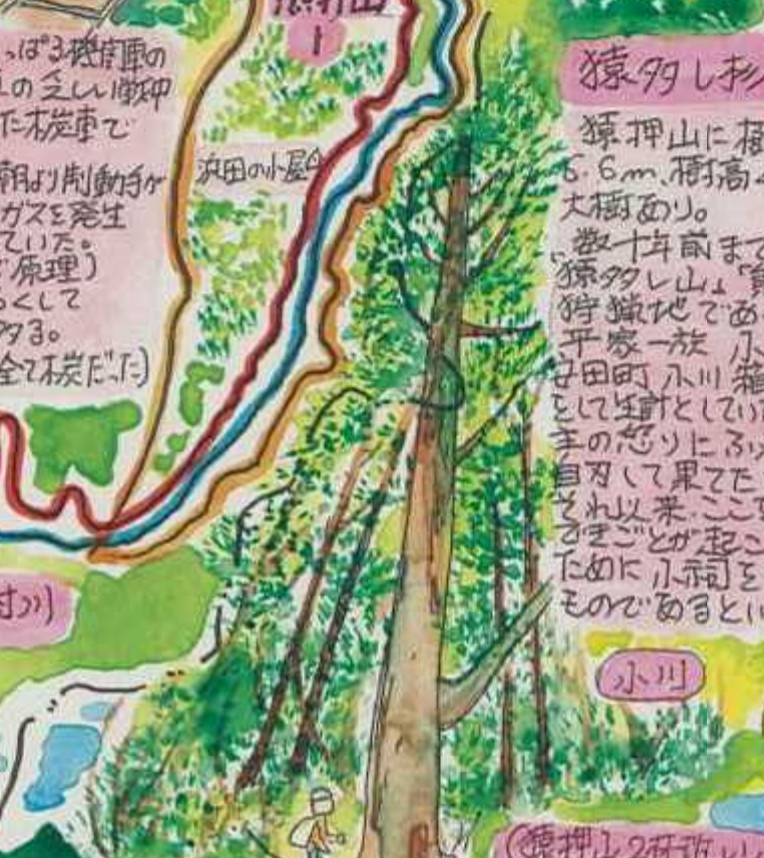 猿押山
1
っぱる機関車の
の乏しい戦中
た木炭車で
朝より制動手が
ガスを発生
ていた。
原理)
らくして
全て木炭だった)
浜田の小屋
猿タレ杉
猿押山に
6.6m、樹高
大樹あり。
数十年前まで
猿タレ山は
狩猟地であ
平家一族 小
田町 小川
として生計としてい
主の怒りにふ
自刃して果てた
それ以来、ここで
できごとが起こ
ために小祠を
ものであるとい
小川